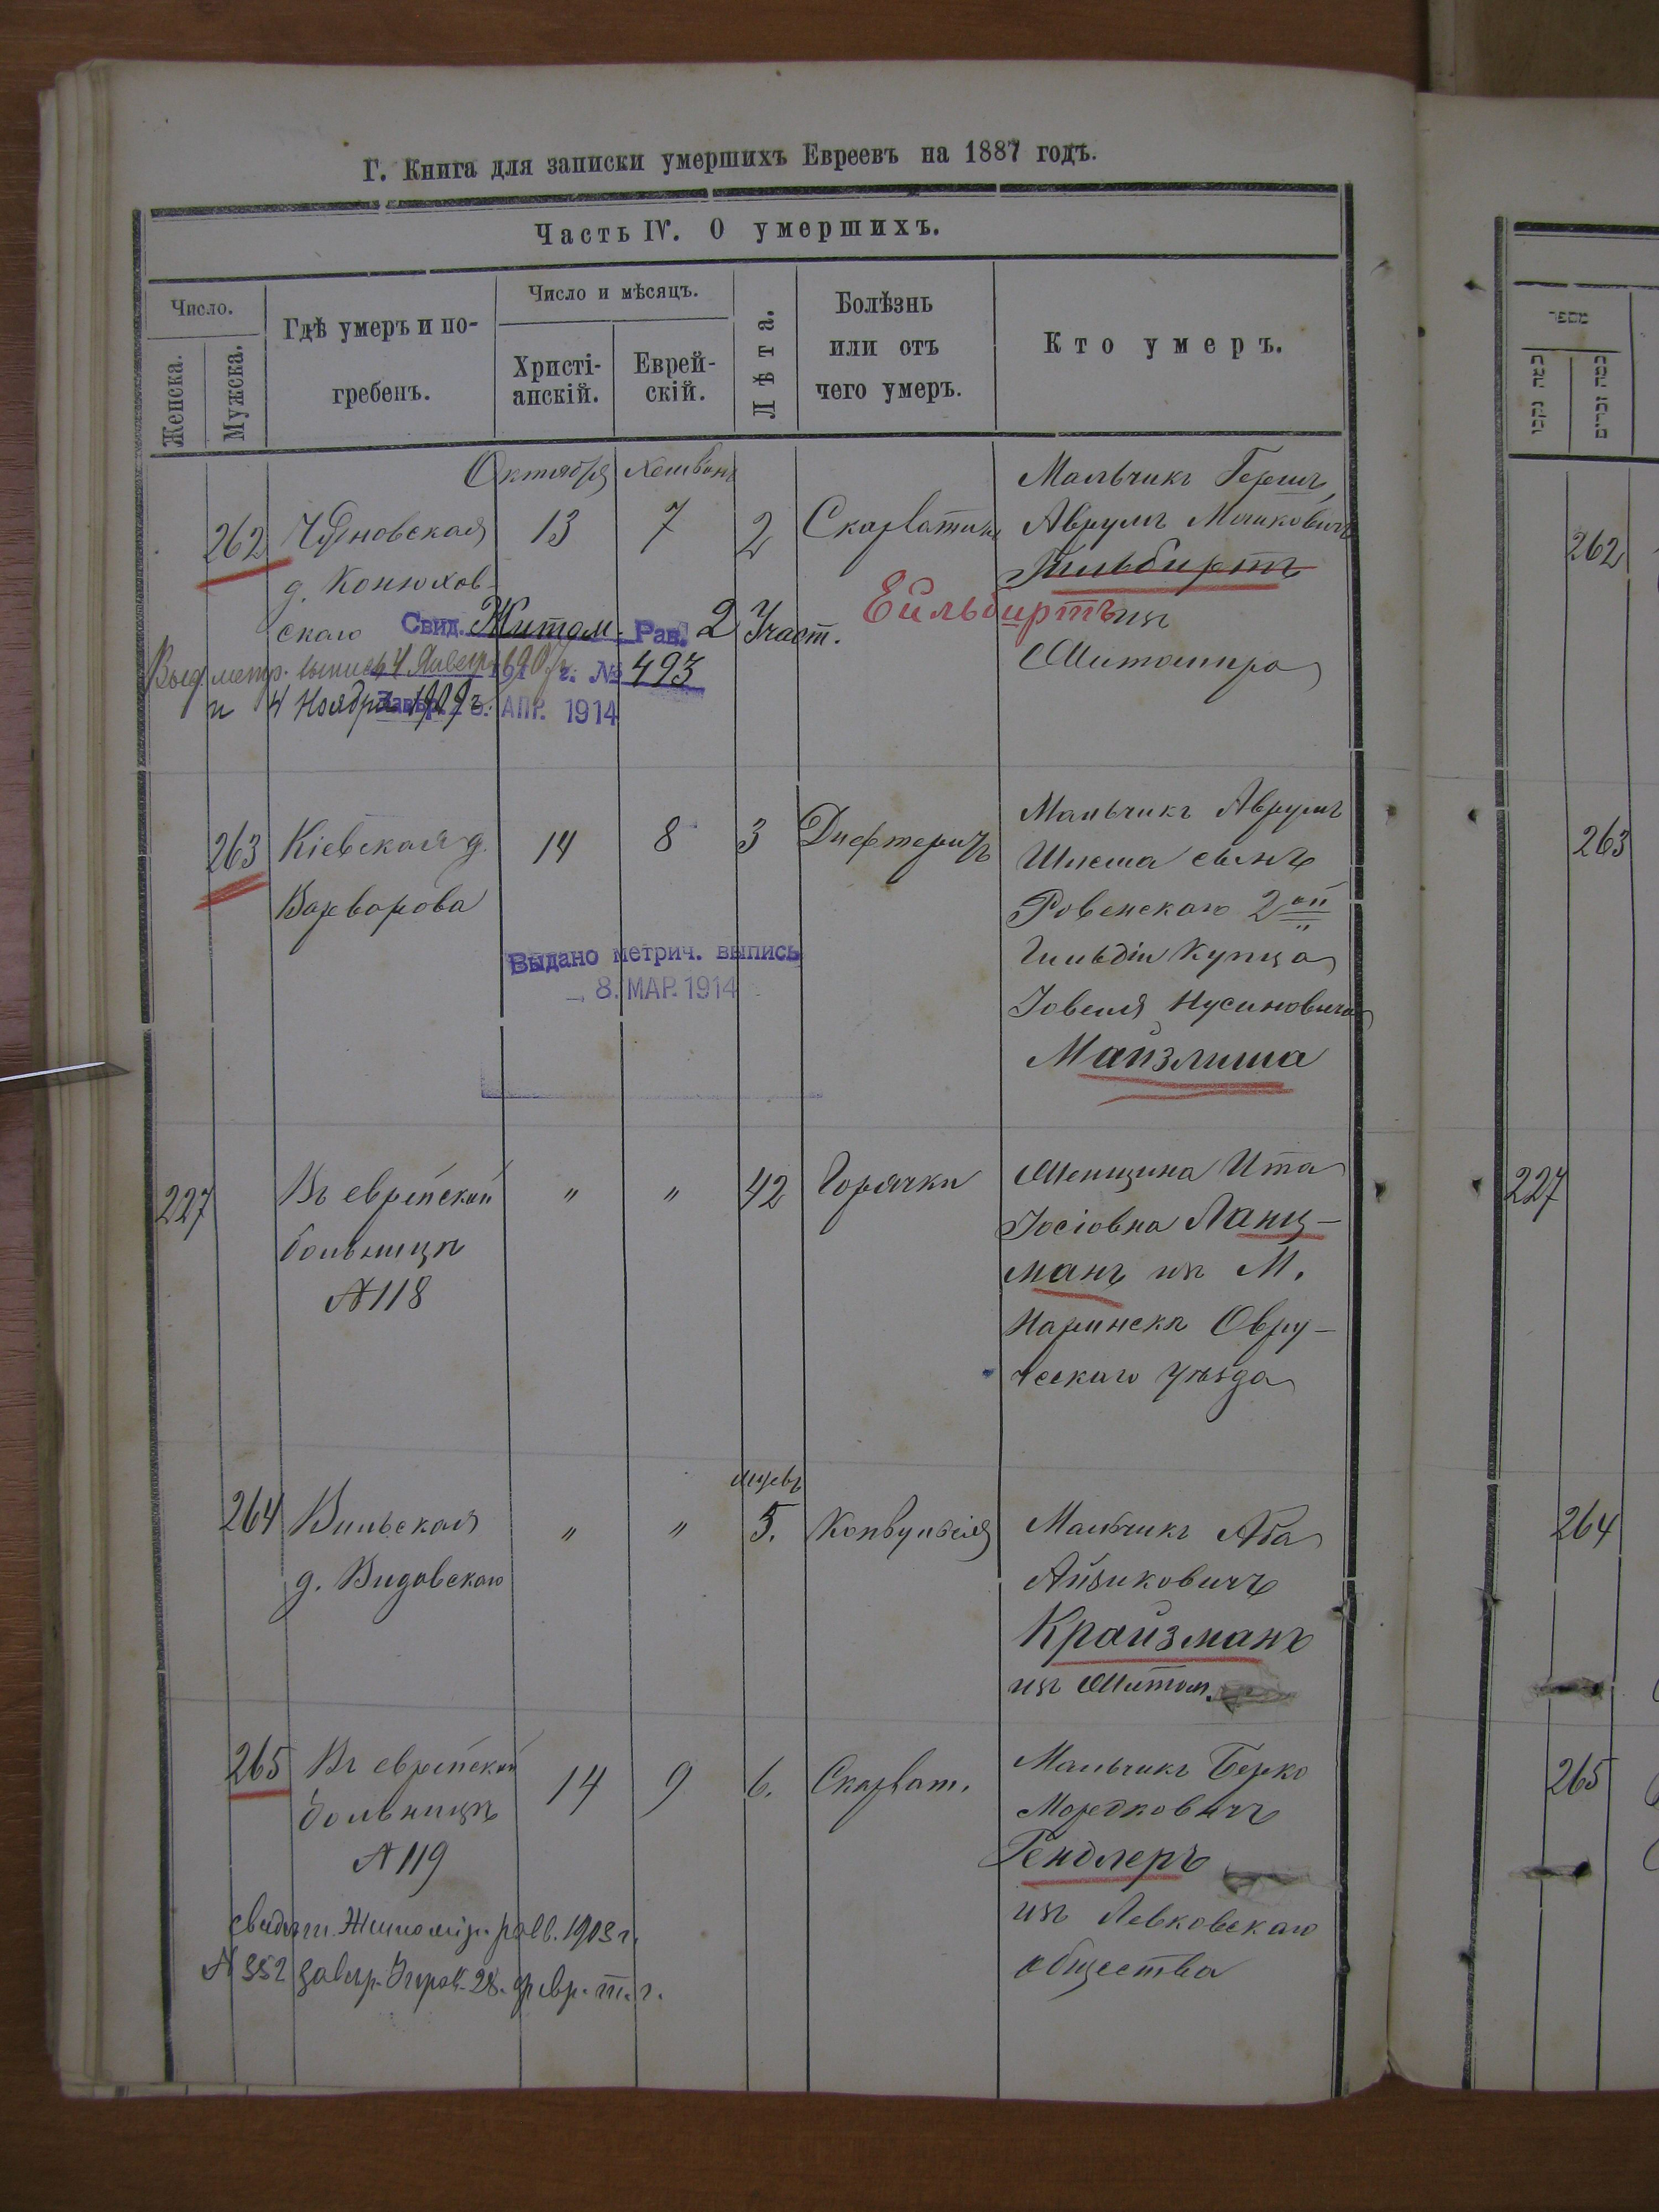 Г. Книга для записки умершихъ Евреевъ на 1887 годъ.
Часть IV. О умершихъ.
Число.
Женска.
Мужска.
Гдѣ умеръ и по-
гребенъ.
Число и мѣсяцъ.
Христі-
анскій.
Еврей-
скій.
Лѣта.
Болѣзнь
или отъ
чего умеръ.
Кто умеръ.
Октября Хешвонъ
262 Чудновская 13 7 2 Скарлатина
д. Конюхов-
скаго
Мальчикъ Гершъ
Аврумъ Мошковичъ
Гильбиртъ
Ейльбиртъ изъ
Житомира
Свид. Житом. Рав. 2 Участ.
Выд метр. выпись 4 Январ 190 г. № 493
и 4 Ноября 1909 г. АПР. 1914
263 Кіевская д. 14 8 3 Дифтеритъ
Варварова
Мальчикъ Аврумъ
Шлема сынъ
Ровенскаго 2ой
Гильдіи Купца
Іовеля Нусиновича
Майзлиша
Выдано метрич. выпись
8. МАР. 1914
227 Въ еврейской " " 42 Горячки
больницѣ
№ 118
Женщина Ита
Іосіовна Ланц-
манъ изъ М.
Наринскъ Овру-
ческаго уѣзда
мѣсяцъ
264 Вильская " " 5. Конвульсія
д. Видавскаго
Мальчикъ Аба
Айзиковичъ
Крайзманъ
изъ Житом.
265 Въ еврейской 14 9 6. Скарлат.
больницѣ
№ 119
Мальчикъ Берко
Мордковичъ
Гендлеръ
изъ Левковскаго
общества
свидѣт. Житомір. равв. 1903 г.
№ 352 завѣр. Управ. 28. февр. т. г.
262
263
227
264
265